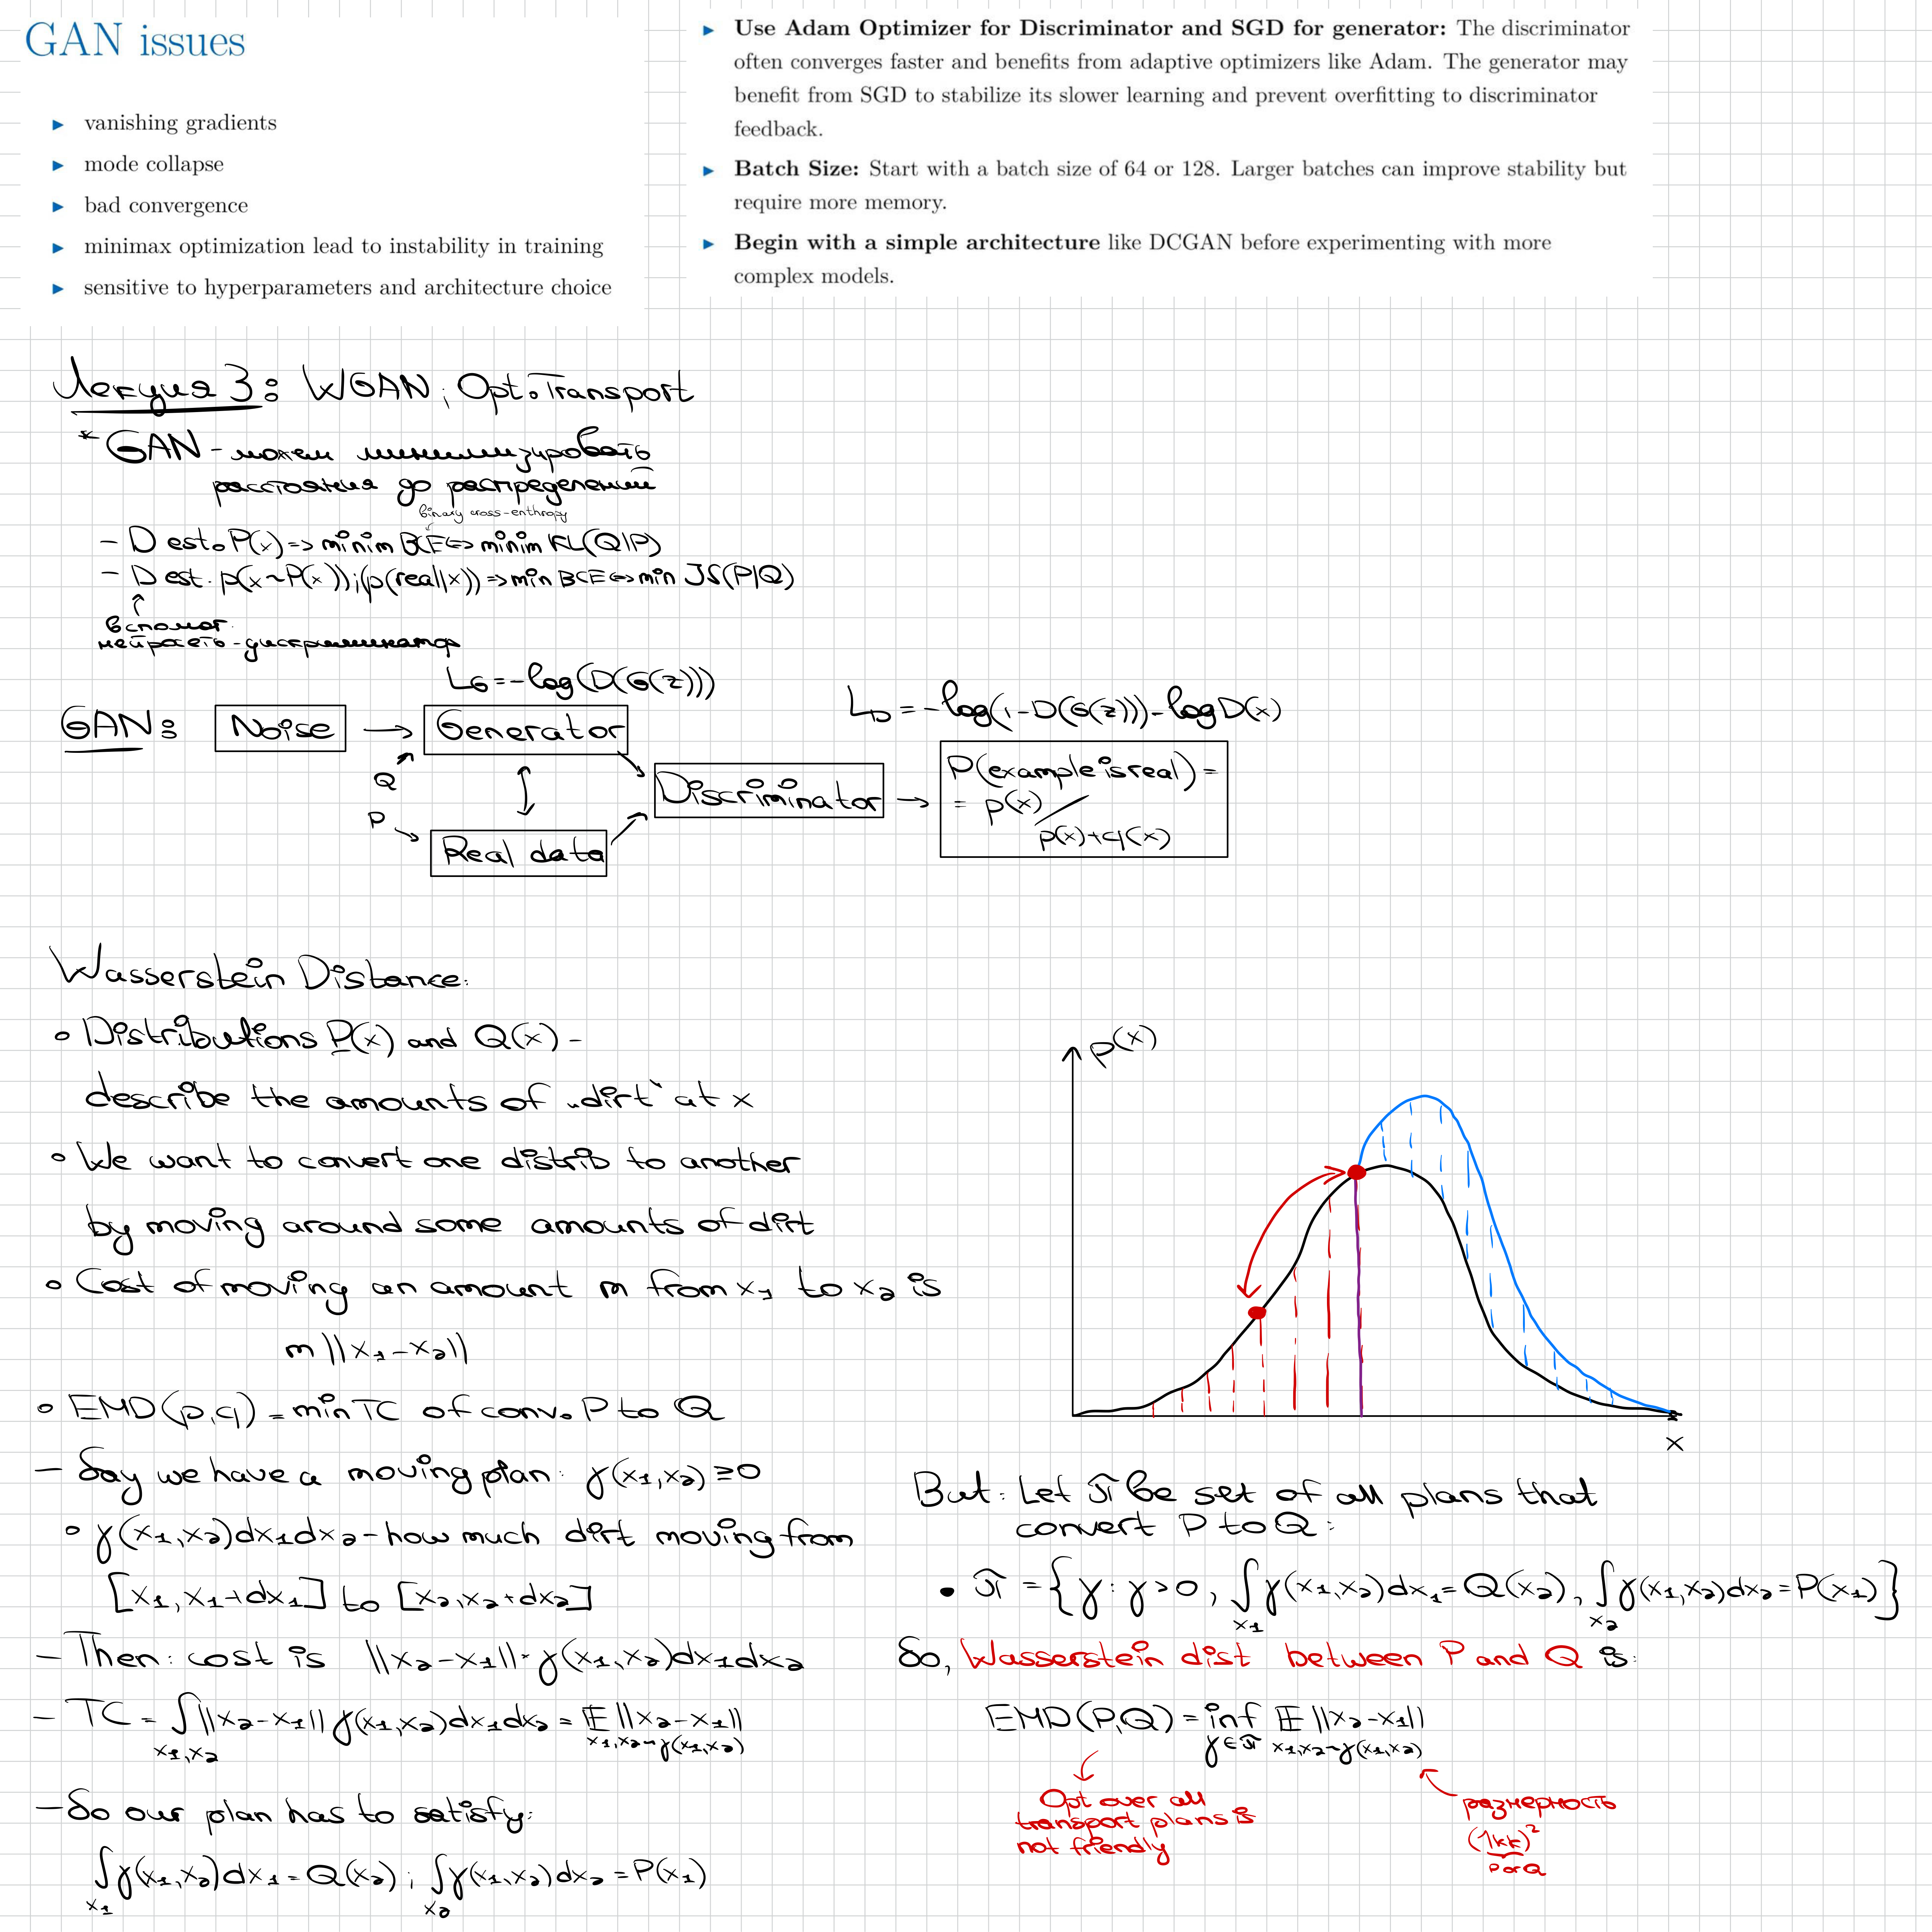 GAN issues
▶ vanishing gradients
▶ mode collapse
▶ bad convergence
▶ minimax optimization lead to instability in training
▶ sensitive to hyperparameters and architecture choice
▶ Use Adam Optimizer for Discriminator and SGD for generator: The discriminator
often converges faster and benefits from adaptive optimizers like Adam. The generator may
benefit from SGD to stabilize its slower learning and prevent overfitting to discriminator
feedback.
▶ Batch Size: Start with a batch size of 64 or 128. Larger batches can improve stability but
require more memory.
▶ Begin with a simple architecture like DCGAN before experimenting with more
complex models.
Лекция 3: WGAN; Opt. Transport
* GAN - можем минимизировать
расстояния до распределений
binary cross-entropy
- D est. P(x) => minim BCE <=> minim KL(Q|P)
- D est. p(x~P(x)); (p(real|x)) => min BCE <=> min JS(P|Q)
вспомог.
нейросеть - дискриминатор
L_G = -log(D(G(z)))
L_D = -log(1-D(G(z))) - log D(x)
GAN:
Noise → Generator
Q
P
Real data
Discriminator →
P(example is real) =
= p(x) /
p(x)+q(x)
Wasserstein Distance:
• Distributions P(x) and Q(x) -
describe the amounts of „dirt“ at x
• We want to convert one distrib to another
by moving around some amounts of dirt
• Cost of moving an amount m from x₁ to x₂ is
m ||x₁-x₂||
• EMD(p,q) = min TC of conv. P to Q
- Say we have a moving plan: γ(x₁,x₂) ≥ 0
• γ(x₁,x₂)dx₁dx₂ - how much dirt moving from
[x₁, x₁+dx₁] to [x₂, x₂+dx₂]
- Then: cost is ||x₂-x₁||·γ(x₁,x₂)dx₁dx₂
- TC = ∫ ||x₂-x₁|| γ(x₁,x₂)dx₁dx₂ = 𝔼 ||x₂-x₁||
x₁,x₂ x₁,x₂~γ(x₁,x₂)
- So our plan has to satisfy:
∫γ(x₁,x₂)dx₁ = Q(x₂); ∫γ(x₁,x₂)dx₂ = P(x₁)
x₁ x₂
p(x)
x
But: Let π be set of all plans that
convert P to Q:
• π = {γ: γ>0, ∫γ(x₁,x₂)dx₁ = Q(x₂), ∫γ(x₁,x₂)dx₂ = P(x₁)}
x₁ x₂
So, Wasserstein dist between P and Q is:
EMD(P,Q) = inf 𝔼 ||x₂-x₁||
γ∈π x₁,x₂~γ(x₁,x₂)
Opt over all
transport plans is
not friendly
размерность
(1kk)²
P or Q